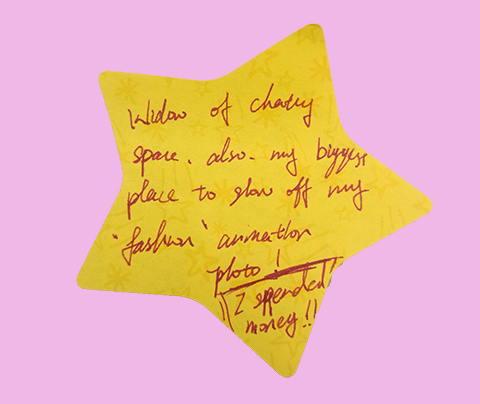 Widow of chatty
space. also. my biggest
place to show off my
"fashion" animation
photo!
I spended
money!!